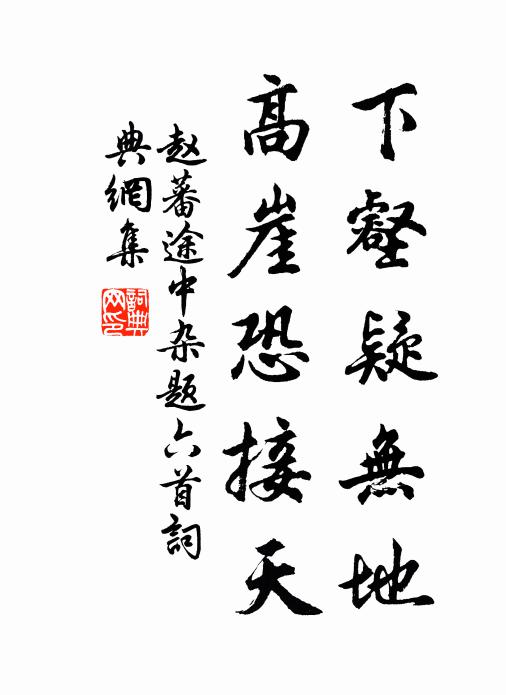 下壑疑無地
高崖恐接天
赵蕃途中杂题六首詞
典網集
詞典網印